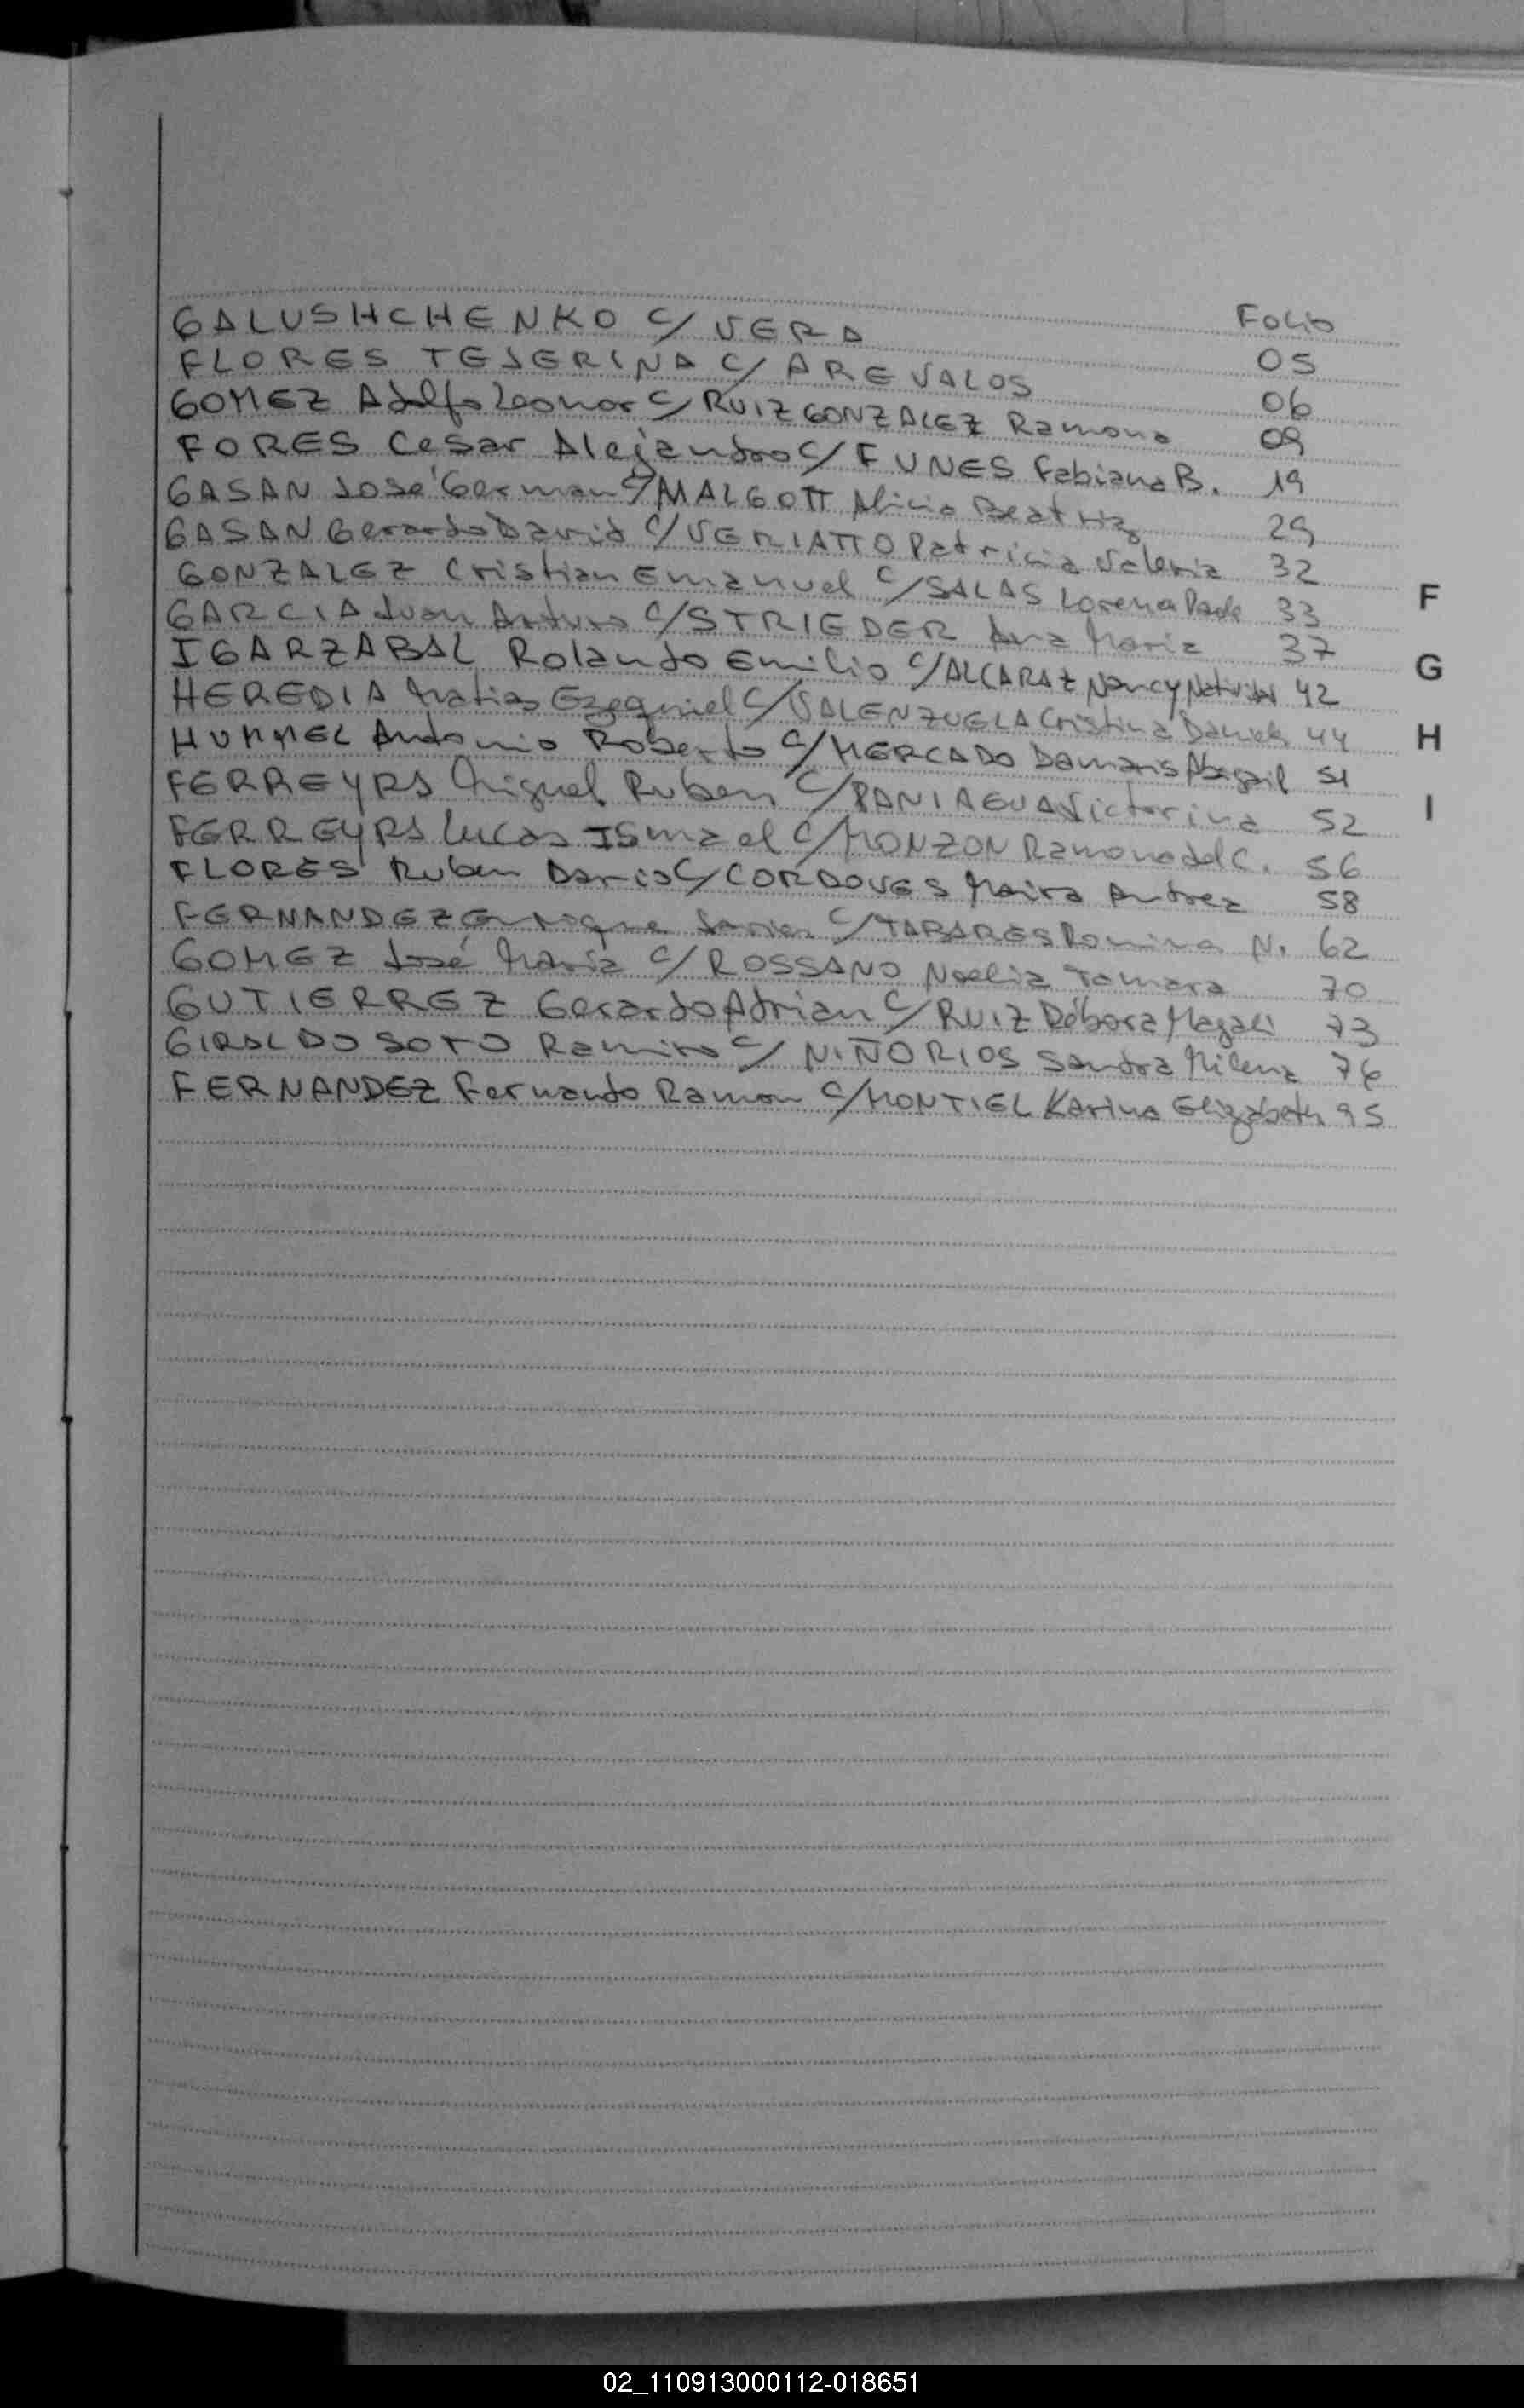 Folio
GALUSHCHENKO C/ VERA 05
FLORES TEJERINA C/ AREVALOS 06
GOMEZ Adolfo Leonor C/ RUIZ GONZALEZ Ramona 09
FORES Cesar Alejandro C/ FUNES Fabiana B. 19
GASAN José German C/ MALGOTT Alicia Beatriz 29
GASAN Gerardo David C/ VERIATTO Patricia Valeria 32
GONZALEZ Cristian Emanuel C/ SALAS Lorena Paola 33
GARCIA Juan Arturo C/ STRIEDER Ana Maria 37
IGARZABAL Rolando Emilio C/ ALCARAZ Nancy Natividad 42
HEREDIA Matias Ezequiel C/ VALENZUELA Cristina Daniela 44
HUMMEL Antonio Roberto C/ MERCADO Damaris Abigail 51
FERREYRA Miguel Ruben C/ PANIAGUA Victorina 52
FERREYRA Lucas Ismael C/ MONZON Ramona del C. 56
FLORES Ruben Dario C/ CORDOVES Maira Andrea 58
FERNANDEZ Enrique Javier C/ TABARES Romina N. 62
GOMEZ José Maria C/ ROSSANO Noelia Tamara 70
GUTIERREZ Gerardo Adrian C/ RUIZ Débora Magali 73
GIRALDO SOTO Ramiro C/ NIÑO RIOS Sandra Milena 76
FERNANDEZ Fernando Ramon C/ MONTIEL Karina Elizabeth 95
F
G
H
I
02_110913000112-018651